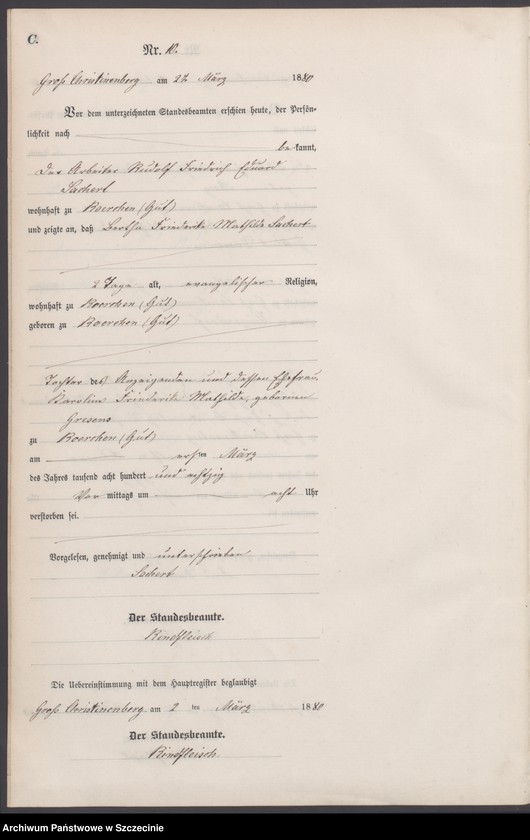 C.
Nr. 10.
Groß Christinenberg am 2ten März 1880
Vor dem unterzeichneten Standesbeamten erschien heute, der Persön-
lichkeit nach
be kannt,
der Arbeiter Rudolf Friedrich Eduard
Sachert
wohnhaft zu Roerchen (Gut)
und zeigte an, daß Bertha Friederike Mathilde Sachert
2 Tage alt, evangelischer Religion,
wohnhaft zu Roerchen (Gut)
geboren zu Roerchen (Gut)
Tochter des Anzeigenden und dessen Ehefrau
Karoline Friederike Mathilde, geborenen
zu Roerchen (Gut)
am ersten März
des Jahres tausend acht hundert und achtzig
Vor mittags um acht Uhr
verstorben sei.
Vorgelesen, genehmigt und unterschrieben
Sachert
Der Standesbeamte.
Rindfleisch
Die Uebereinstimmung mit dem Hauptregister beglaubigt
Groß Christinenberg am 2 ten März 1880
Der Standesbeamte.
Rindfleisch
Archiwum Państwowe w Szczecinie